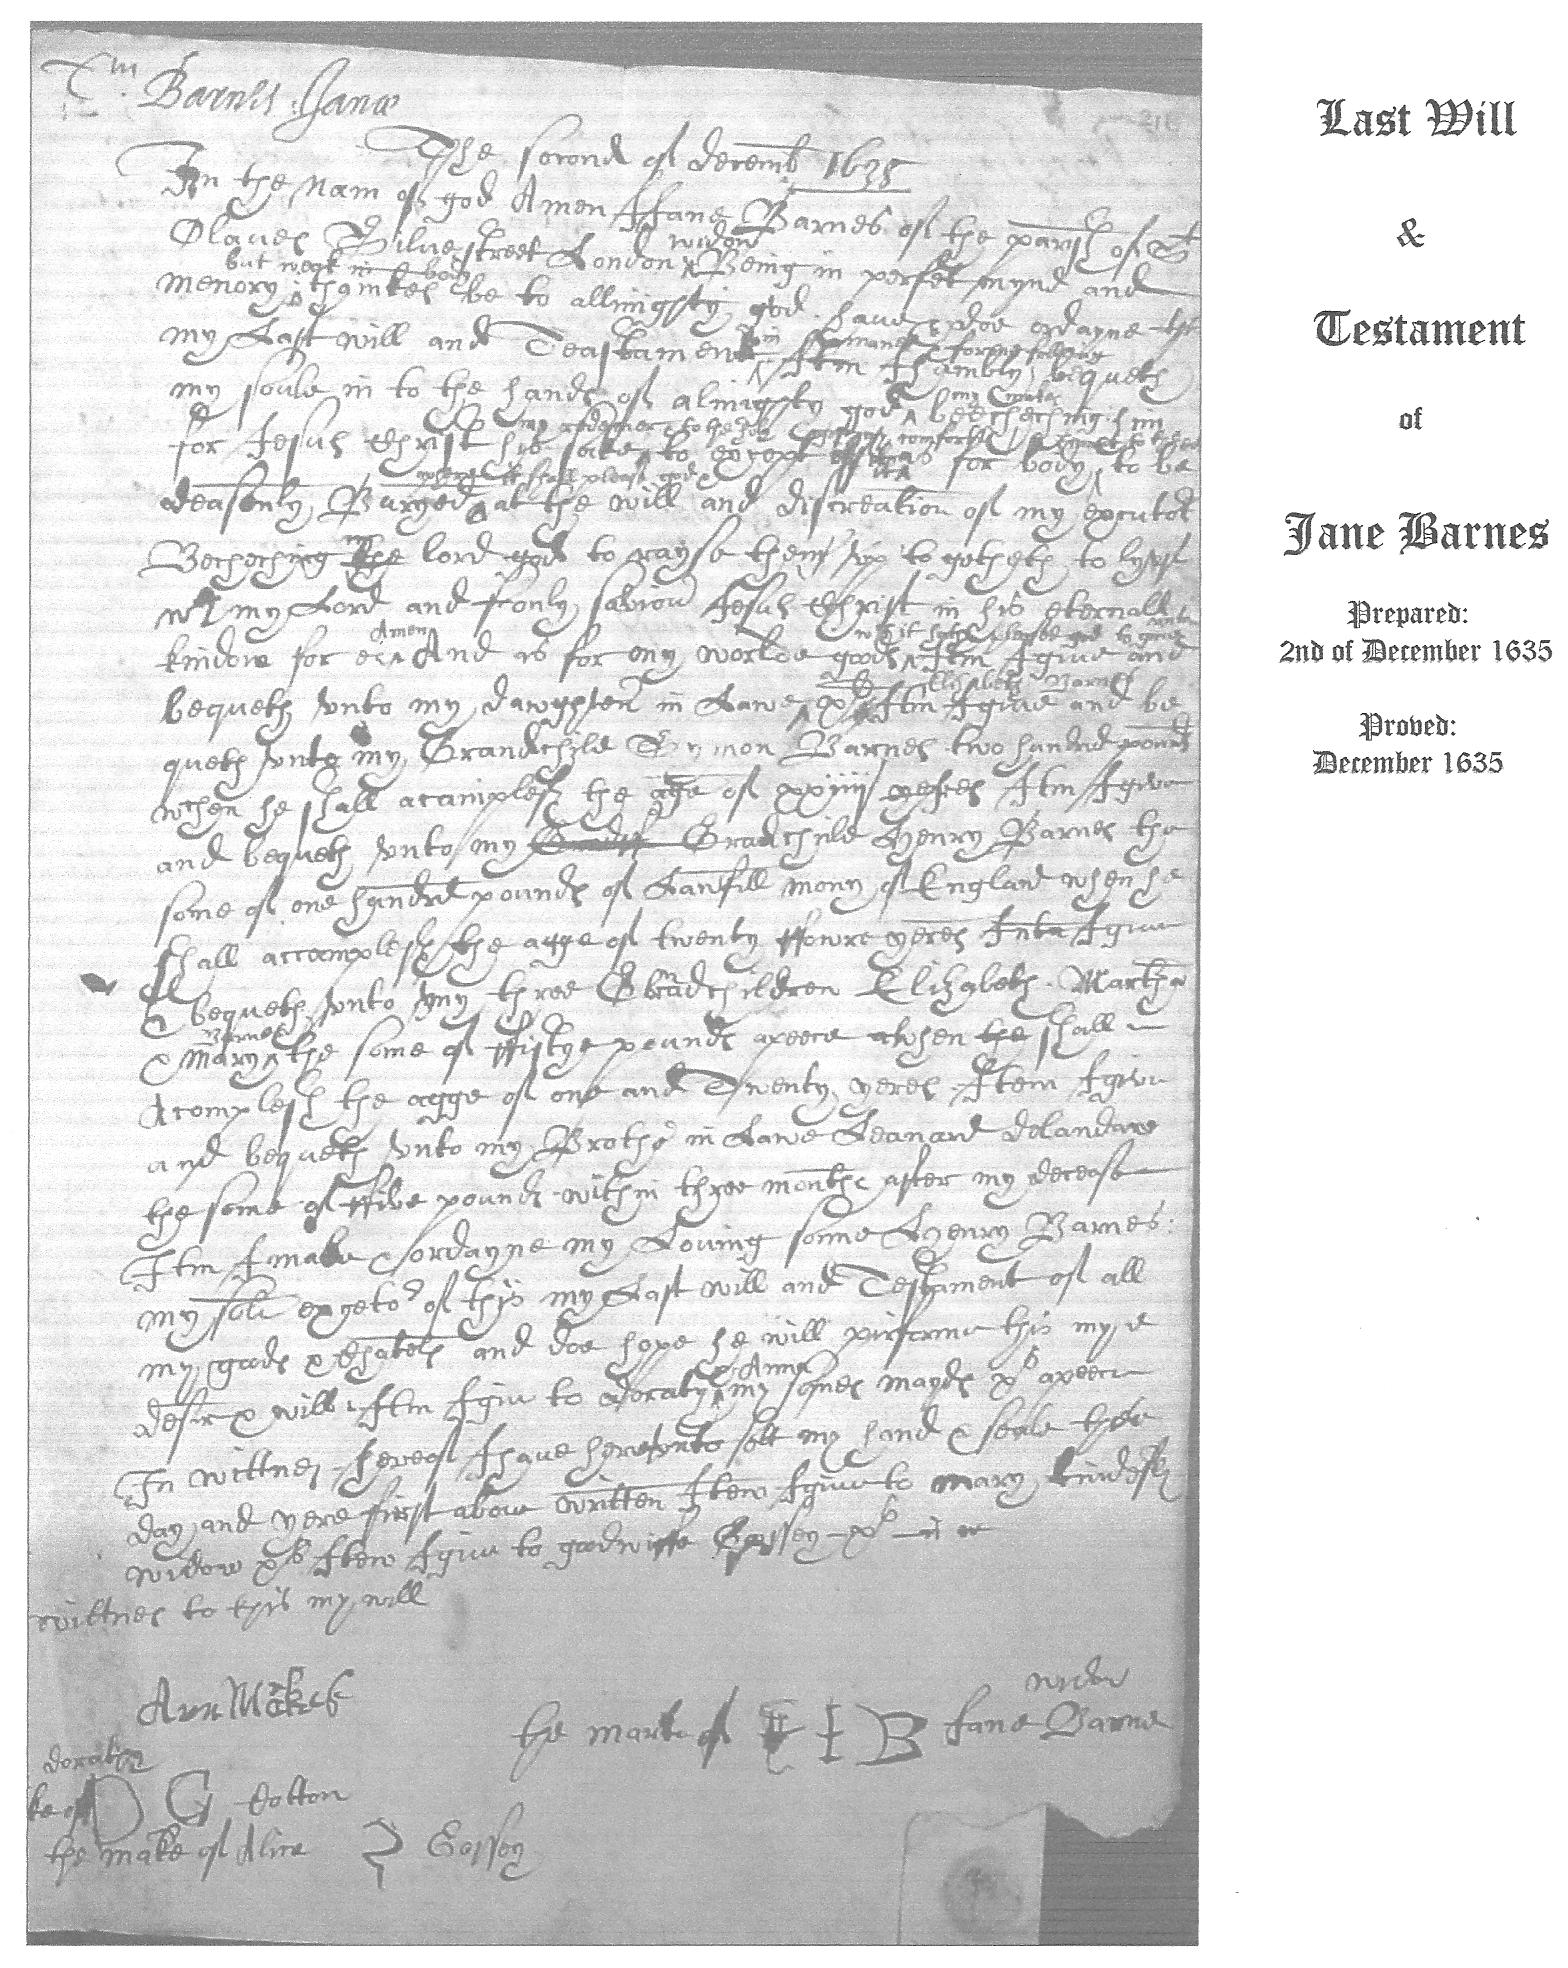 Barnes Jane
The second of decemb 1635
In the Nam of god Amen I Jane Barnes of the parish of St
Olaves Silve street London widow Being in perfet mynd and
but weak in body
memory thankes be to allmighty god have & doe ordayne this
my Last will and Teastament in maner & forme folloing Itm I humbly bequeth
my soule in to the hands of almighty god my beseching him
for Jesus Christ his sake my redemer to except for body to be
where it shall please god
deasenly Buryed at the will and discreation of my executor
Beseching my lord to rayse them up to gether to lyve
wt my Lord and only saviour Jesus Christ in his eternall
kindom for Amen And as for my worlde goods Itm I give and
Elizabeth Barnes
bequeth unto my dawghter in Lawe Itm I give and be
queth unto my Grandchild Symon Barnes two hundred pounds
when he shall acamplesh the age of xxiiii yeres Itm I give
and bequeth unto my Gradchild Henry Barnes the
some of one hundred pounds of Lawfill mony of England when he
shall accomplesh the agge of twenty ffowre yeres I give
& bequeth unto my three Gradchildren Elizabeth Martha
& Mary Barnes the some of ffiftye pounds apeece when the shall
Acomplesh the agge of one and Twenty yeres Item I give
and bequeth unto my Brother in Lawe Leanard
the some of ffive pounds within three months after my decease
Itm I make & ordayne my Loving sonne Henry Barnes
my sole exeketor of this my Last will and Testament of all
my goods & chatels and doe hope he will performe this my
desir & will Itm I give to doraty & Anne my sones mayds xs apeece
In wittnes hereof I have hereunto sett my hand & seale the
day and yere first above written Item I give to mary
widow xs Item I give to goodwiffe Gossey xs
wittnes to this my will
Ann Makes
the mark of I B Jane Barne
widow
doraty
D C Cotton
the make of Alice Gossey
Last Will
&
Testament
of
Jane Barnes
Prepared:
2nd of December 1635
Proved:
December 1635